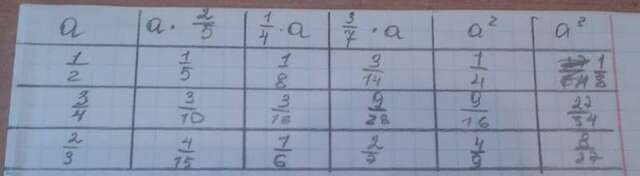 a a · 2/5 1/4 · a 3/7 · a a² a³
1/2 1/5 1/8 3/14 1/4 1/8
3/4 3/10 3/16 9/28 9/16 27/34
2/3 4/15 1/6 2/7 4/9 8/27